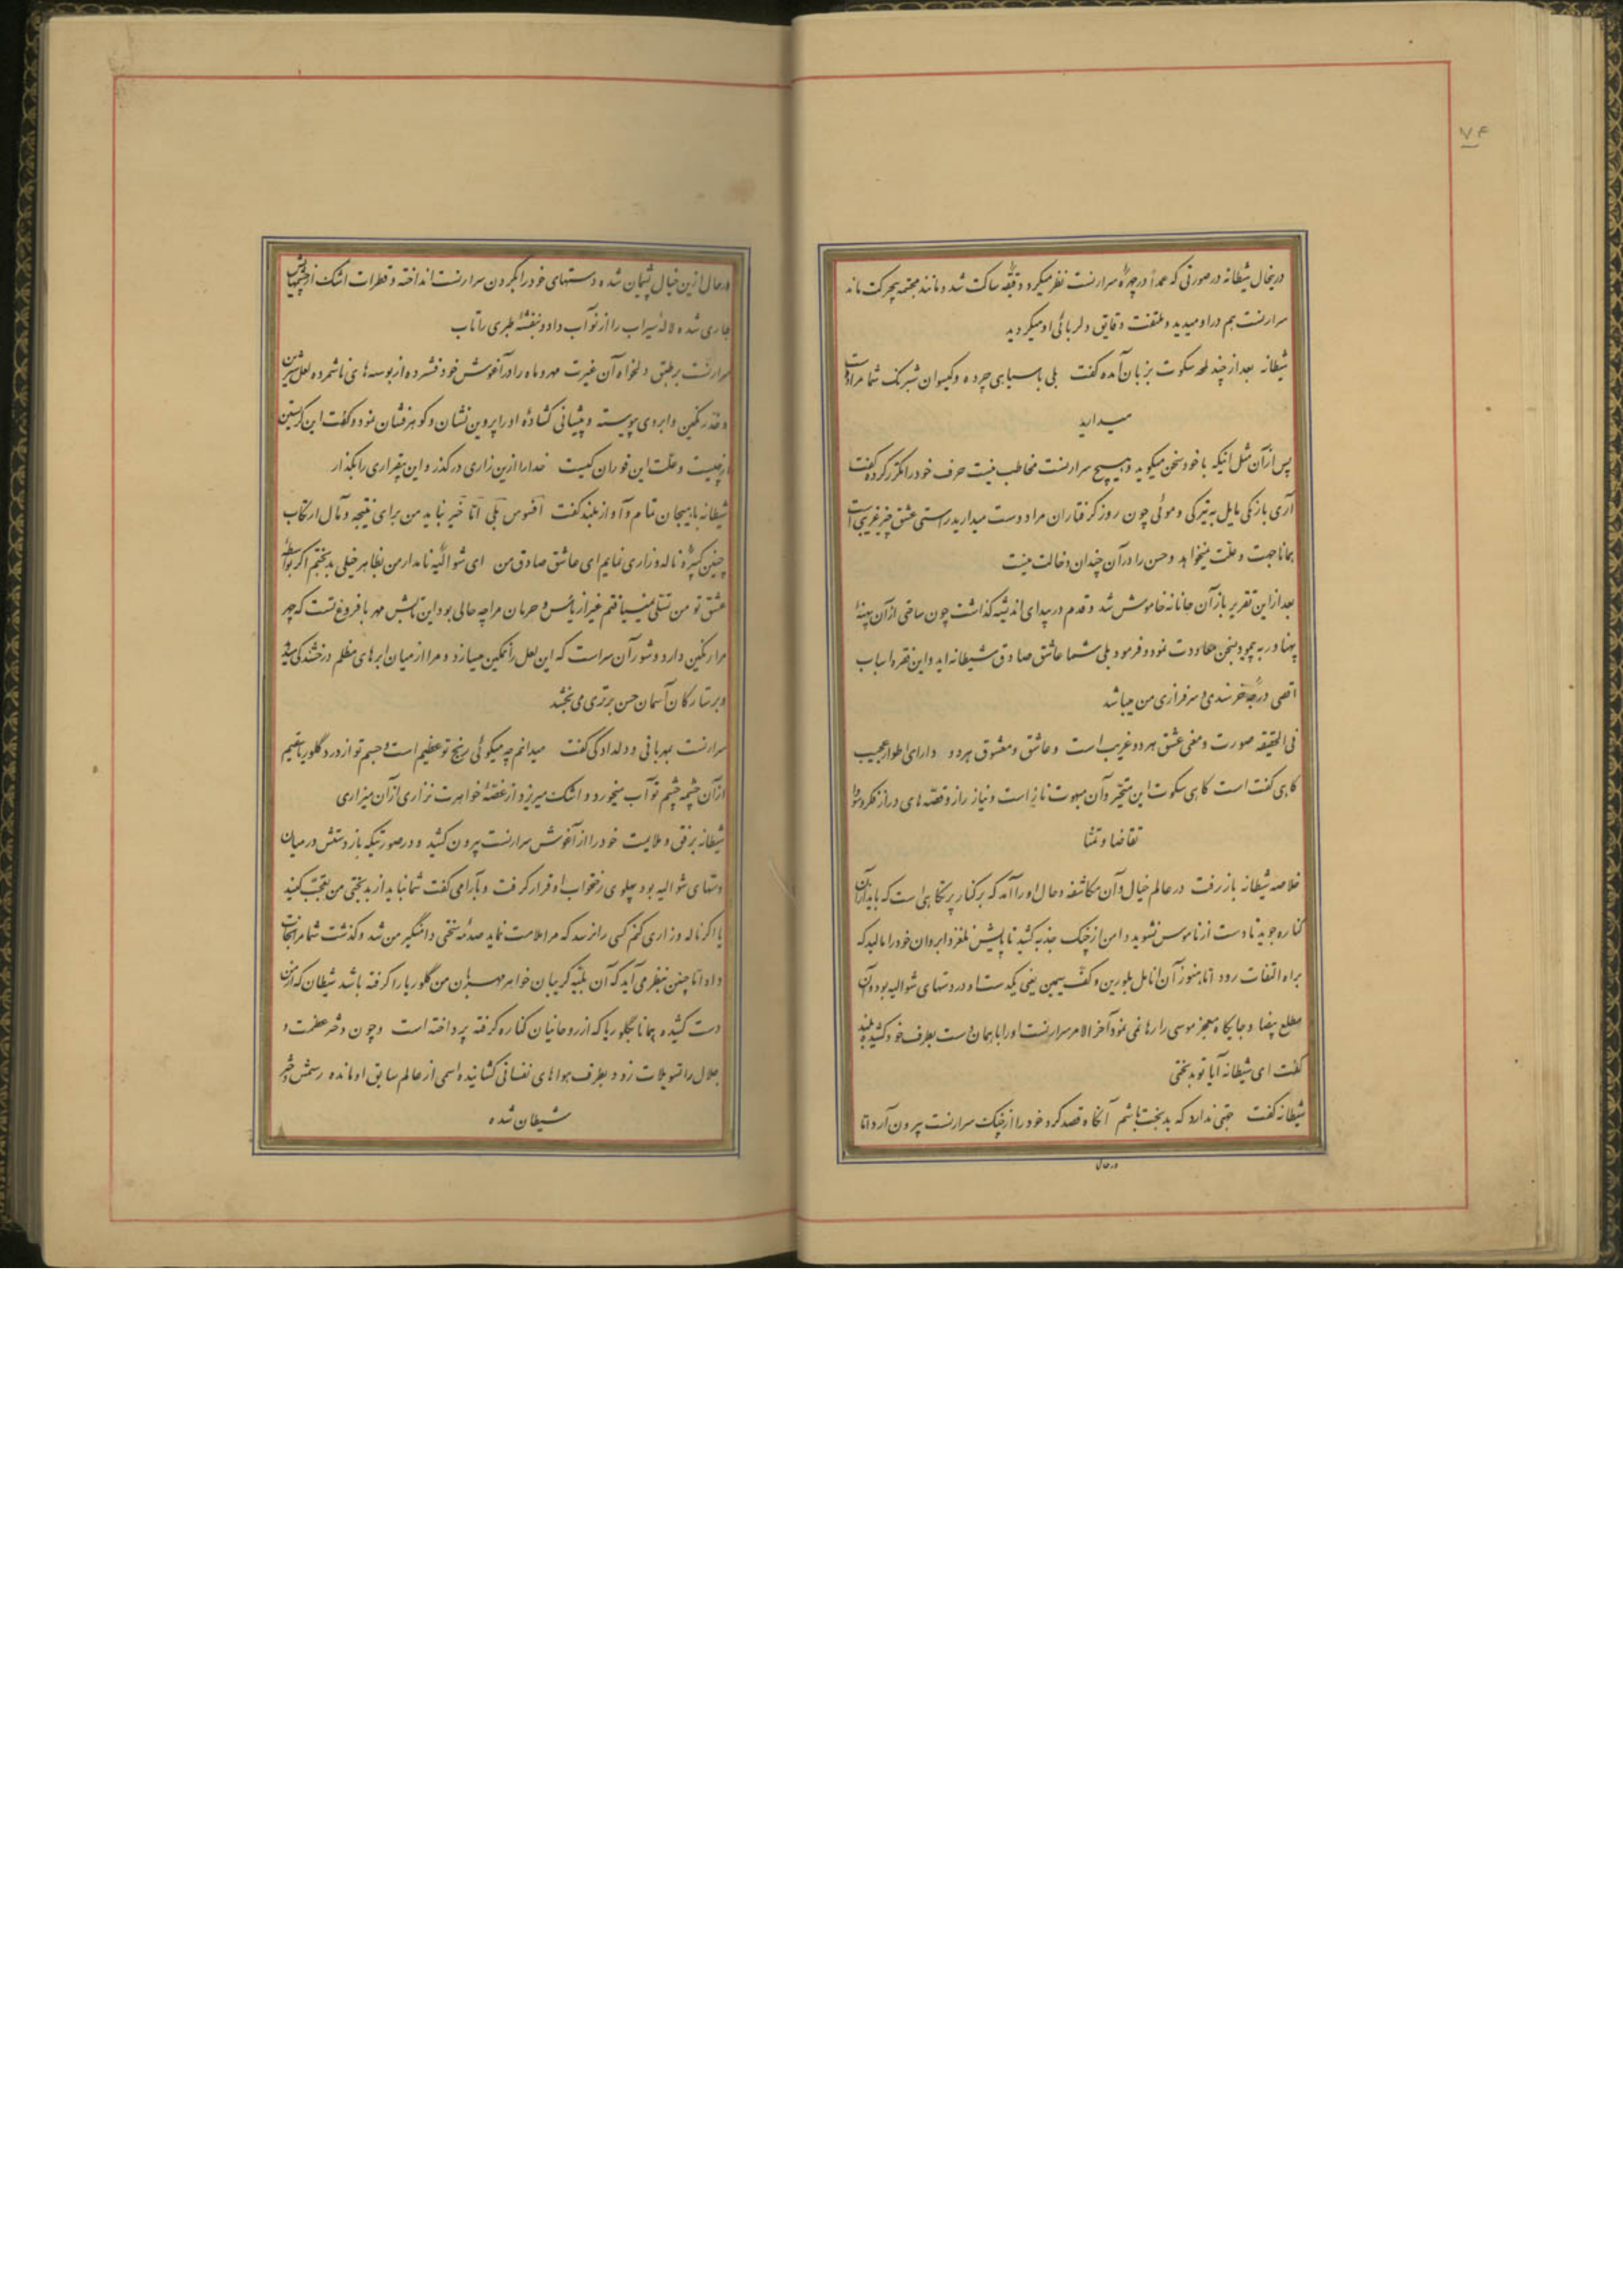 ۷۴
درینحال شیطانه در صورتی که عمداً در چهرهٔ سرارنست نظر میکرد دقیقهٔ ساکت شد و مانند مجسمه بیحرکت ماند
سرارنست هم در او میدید و ملتفت دقایق دلربائی او میگردید
شیطانه بعد از چند لمحه سکوت بزبان آمده گفت بلی با سیاهی چرده و گیسوان شبرنگ شما مرا دوست
میدارید
پس از آن مثل اینکه با خود سخن میگوید و بهیچ سرارنست مخاطب نیست حرف خود را مکرر کرده گفت
آری با رنگی مایل به تیرگی و موئی چون روز گرفتاران مرا دوست میدارید راستی عشق چیز غریبی است
همانا جهت و علت نمیخواهد و حسن را در آن چندان دخالت نیست
بعد از این تقریر باز آن جانانه خاموش شد و قدم در بیدای اندیشه گذاشت چون ساعتی از آن پهنهٔ
پهناور به پیمود بسخن معاودت نمود و فرمود بلی شما عاشق صادق شیطانه اید و این فقره اسباب
اقصی درجهٔ خرسندی و سرفرازی من میباشد
فی الحقیقه صورت و معنی عشق هر دو غریب است و عاشق و معشوق هر دو دارای اطوار عجیب
گاهی گفت است گاهی سکوت این متحیر و آن مبهوت ناز است و نیاز راز و قصّه های دراز فکر و سودا
تقاضا و تمنا
خلاصه شیطانه باز رفت در عالم خیال و آن مکاشفه و حال او را آمد که بر کنار پرتگاهی است که باید از آن
کناره جوید تا دست از ناموس نشوید دامن از چنگ جذبه کشید تا پایش نلغزد ابروان خود را مالید که
براه التفات رود اما هنوز آن انامل بلورین و کف سیمین یعنی یکدست او در دستهای شوالیه بود و آن
مطلع بیضا و جایگاه معجز موسی را رها نمی نمود آخر الامر سرارنست او را با همان دست بطرف خود کشیده بلند
گفت ای شیطانه آیا تو بدبختی
شیطانه گفت جهتی ندارد که بدبخت باشم آنگاه قصد کرد خود را از چنگ سرارنست بیرون آرد اما
در حال
در حال ازین خیال پشیمان شده دستهای خود را بگردن سرارنست انداخته و قطرات اشک از چشمهایش
جاری شده لالهٔ سیراب را از نو آب داد و بنفشهٔ طبری را تاب
سرارنست بر طبق دلخواه آن غیرت مهر و ماه را در آغوش خود فشرده از بوسه های ناشمرده لعل شیرین
و خد رنگین و ابروی پیوسته و پیشانی گشادهٔ او را پروین نشان و گوهر فشان نمود و گفت این گریستن
از چیست و علّت این فوران کیست خدا را ازین زاری درگذر و این بیقراری را بگذار
شیطانه با هیجان تمام و آواز بلند گفت افسوس بلی امّا خیر نباید من برای نتیجه و مآل ارتکاب
چنین کبیرهٔ ناله و زاری نمایم ای عاشق صادق من ای شوالیهٔ نامدار من بظاهر خیلی بدبختم اگر بواسطهٔ
عشق تو من تسلّی نمییافتم غیر از یأس و حرمان مرا چه حالی بود این تابش مهر با فروغ تست که چهر
مرا رنگین دارد و شور آن سر است که این لعل را نمکین میسازد و مرا از میان ابرهای مظلم درخشندگی میدهد
و بر ستارگان آسمان حسن برتری می بخشد
سرارنست بمهربانی و دلدادگی گفت میدانم چه میگوئی رنج تو عظیم است و جسم تو از درد گلوریا سقیم
از آن چشمه چشم تو آب میخورد و اشک میریزد و از غصّهٔ خواهرت نزاری از آن میزاری
شیطانه برفق و ملایمت خود را از آغوش سرارنست بیرون کشید و در صورتیکه باز دستش در میان
دستهای شوالیه بود پهلوی رختخواب او قرار گرفت و بآرامی گفت شما نباید از بدبختی من تعجّب کنید
یا اگر ناله و زاری کنم کسی را نرسد که مرا ملامت نماید صدمهٔ سختی دامنگیر من شد و گذشت شما مرا نجات
داد اما چنین بنظر می آید که آن بلیّه گریبان خواهر مهربان من گلوریا را گرفته باشد شیطان که از من
دست کشیده همانا بگلوریا که از روحانیان کناره گرفته پرداخته است و چون دختر عظمت و
جلال را تسویلات زود بطرف هواهای نفسانی کشانیده اسمی از عالم سابق او مانده رسمش دختر
شیطان شده